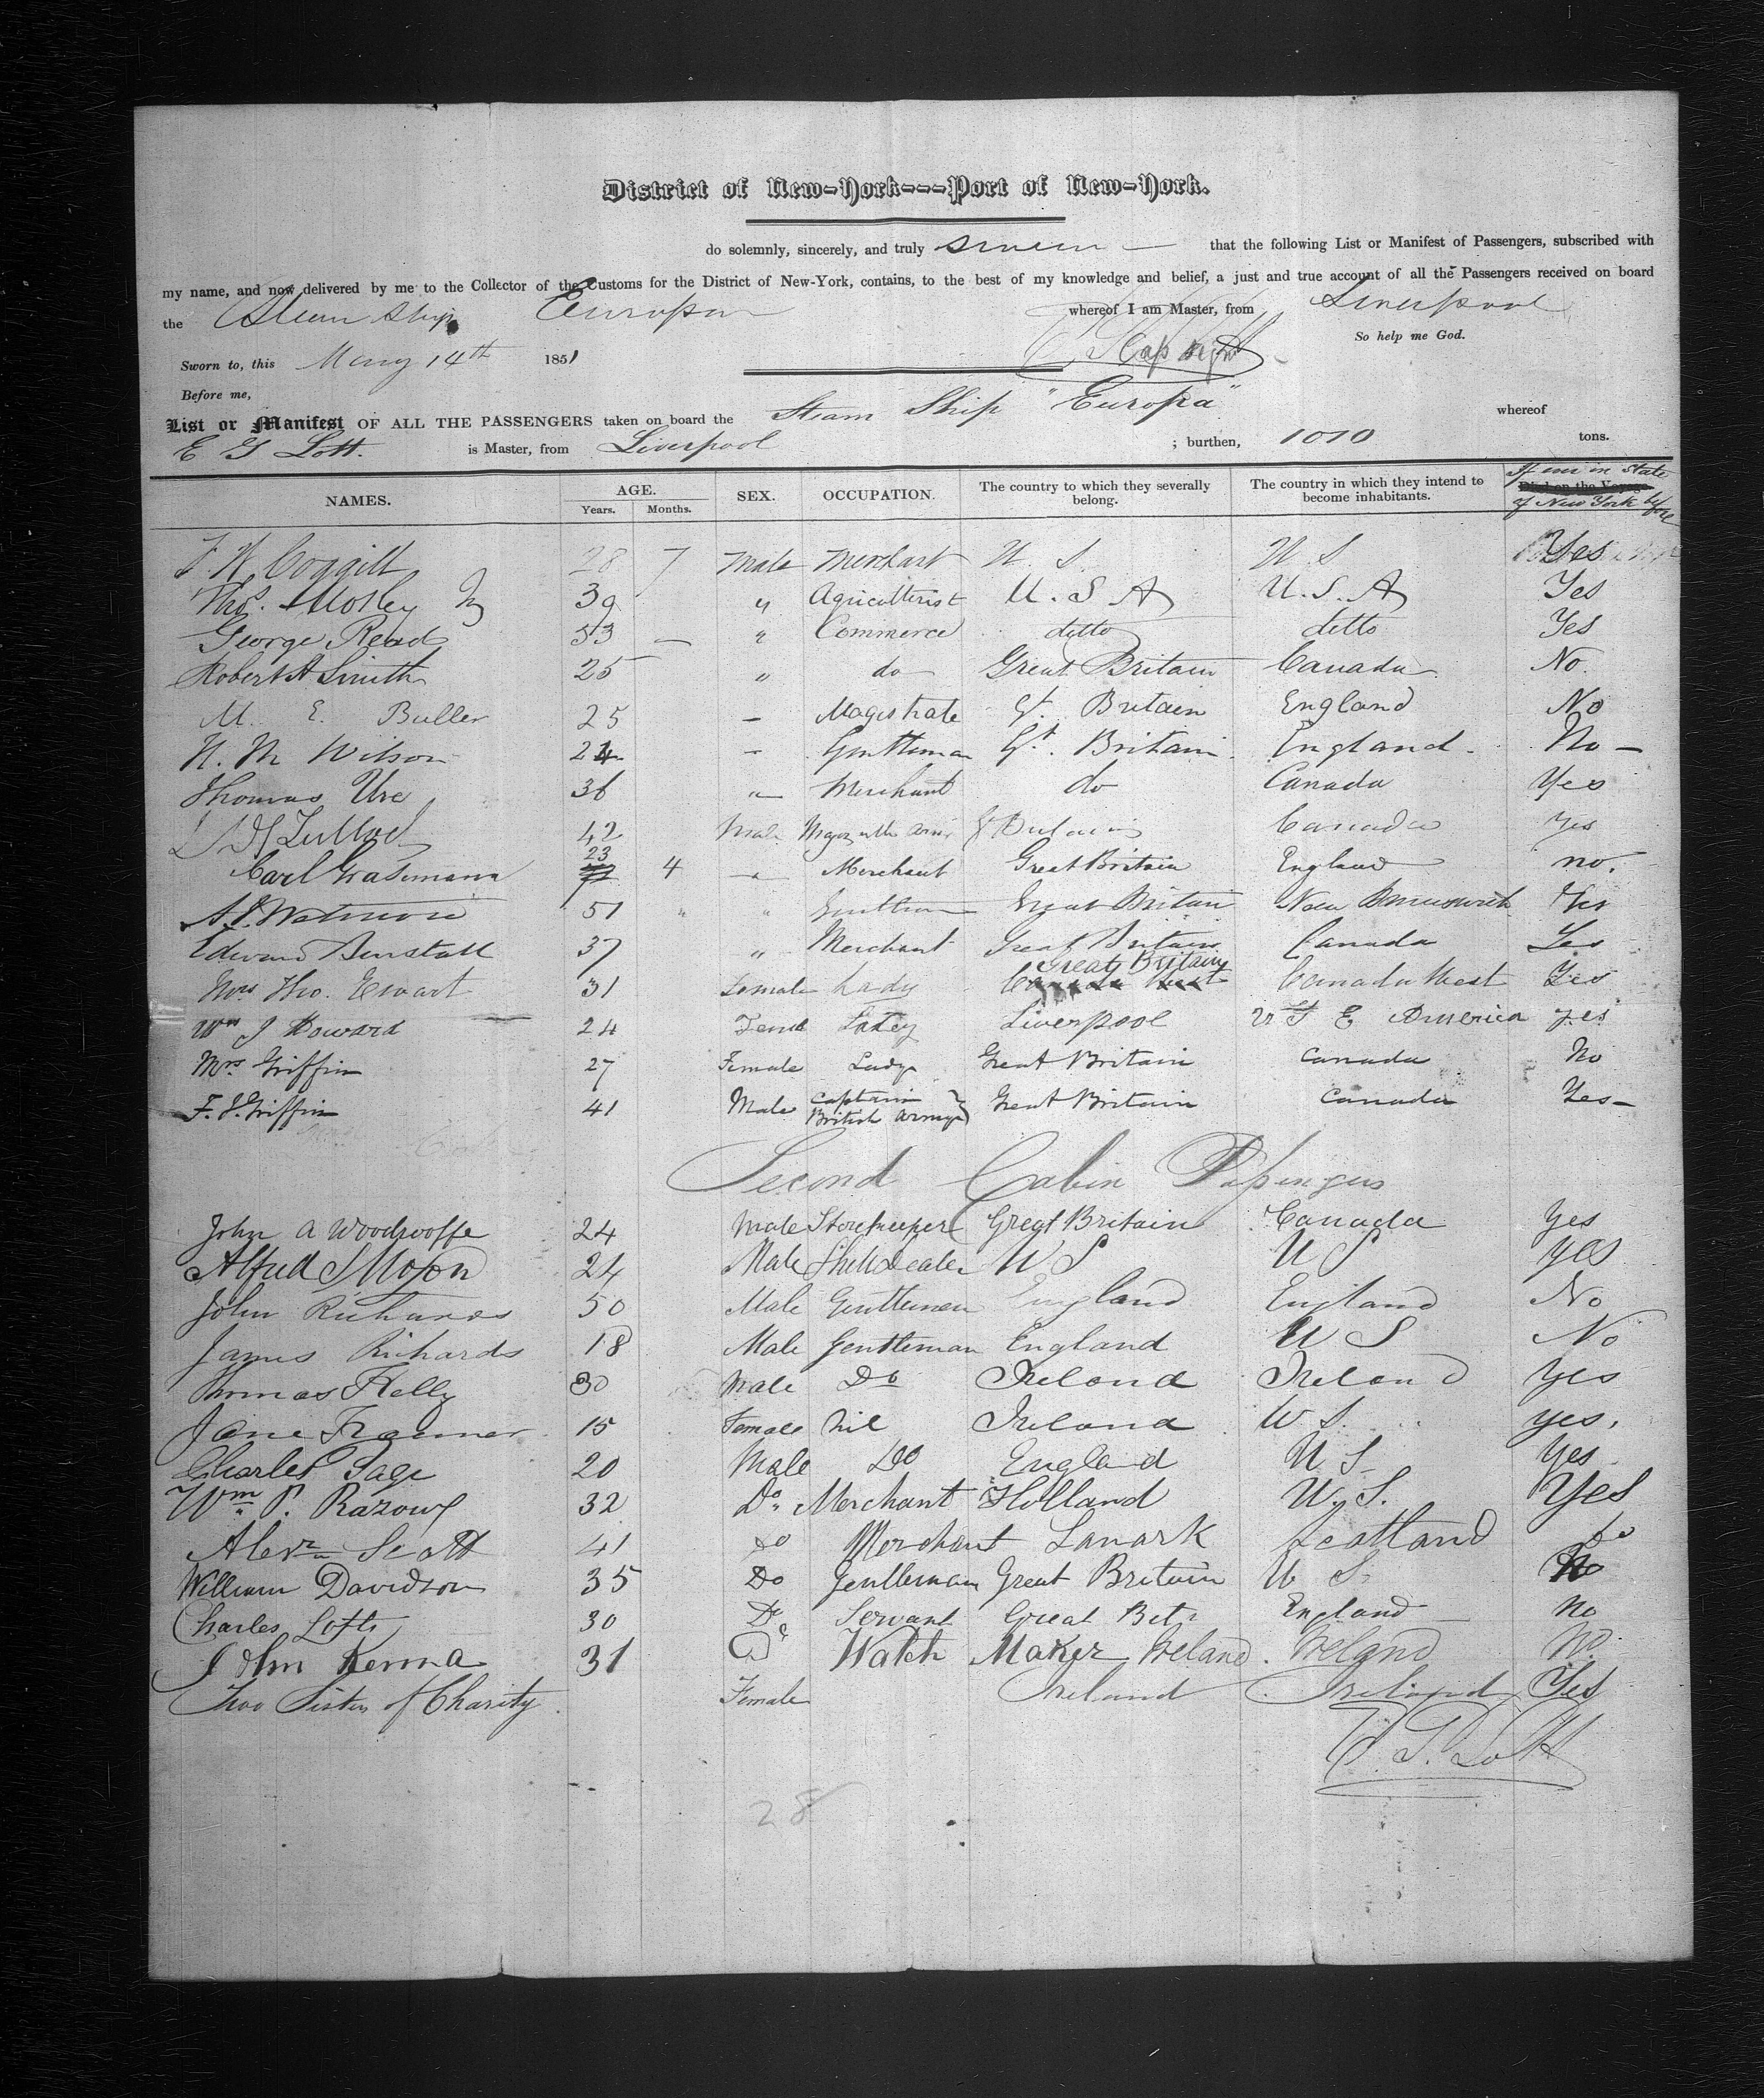 District of New-York---Port of New-York.
do solemnly, sincerely, and truly swear that the following List or Manifest of Passengers, subscribed with
my name, and now delivered by me to the Collector of the Customs for the District of New-York, contains, to the best of my knowledge and belief, a just and true account of all the Passengers received on board
the Steam Ship Europa whereof I am Master, from Liverpool
So help me God.
Sworn to, this May 14th 1851
Before me,
List or Manifest OF ALL THE PASSENGERS taken on board the Steam Ship "Europa" whereof
E G Lott. is Master, from Liverpool ; burthen, 1010 tons.
NAMES. AGE. Years. Months. SEX. OCCUPATION. The country to which they severally belong. The country in which they intend to become inhabitants. If ever in State of New York before
F. W. Coggill 28 7 Male Merchant U. S. U S Yes
Thos. Mosley 39 " Agriculturist U. S A U. S. A Yes
George Read 53 — " Commerce ditto ditto Yes
Robert A Smith 25 " do Great Britain Canada No.
M. E. Buller 25 - Magistrate Gt. Britain England No
N. M Wilson 24 - Gentleman Gt. Britain England. No -
Thomas Ure 36 " Merchant do Canada Yes
42 Male Major in the Army Gt Britain Canada Yes
Carl Grasemann 23 4 " Merchant Great Britain England no.
51 " " Gentleman Great Britain New Brunswick Yes
Edward Burstall 37 " Merchant Great Britain Canada Yes
Mrs Tho. Ewart 31 Female Lady Great Britain Canada West Yes
Wm J Howard 24 Liverpool America yes
Mrs. Griffin 27 Female Lady Great Britain Canada No
F. J. Griffin 41 Male Captain British Army Great Britain Canada Yes-
Second Cabin Passengers
John A Woodrooffe 24 Male Storekeeper Great Britain Canada Yes
Alfred S Moson 24 Male Shell Dealer U S U S yes
John Richards 50 Male Gentleman England England No
James Richards 18 Male Gentleman England U S No
Thomas Kelly 30 Male Do Ireland Ireland Yes
Jane 15 Female Nil Ireland U S. yes.
Charles Sage 20 Male Do England U S yes
Wm P. Razoux 32 Do. Merchant Holland U. S. Yes
Alexr Scott 41 Do Merchant Lanark Scotland Do
William Davidson 35 Do Gentleman Great Britain U S. No
Charles Lofts 30 Do Servant Great Bt. England No
John Kenna 31 Do Watch Maker Ireland. Ireland No.
Two Sisters of Charity Female Ireland Ireland Yes
E. G. Lott
28